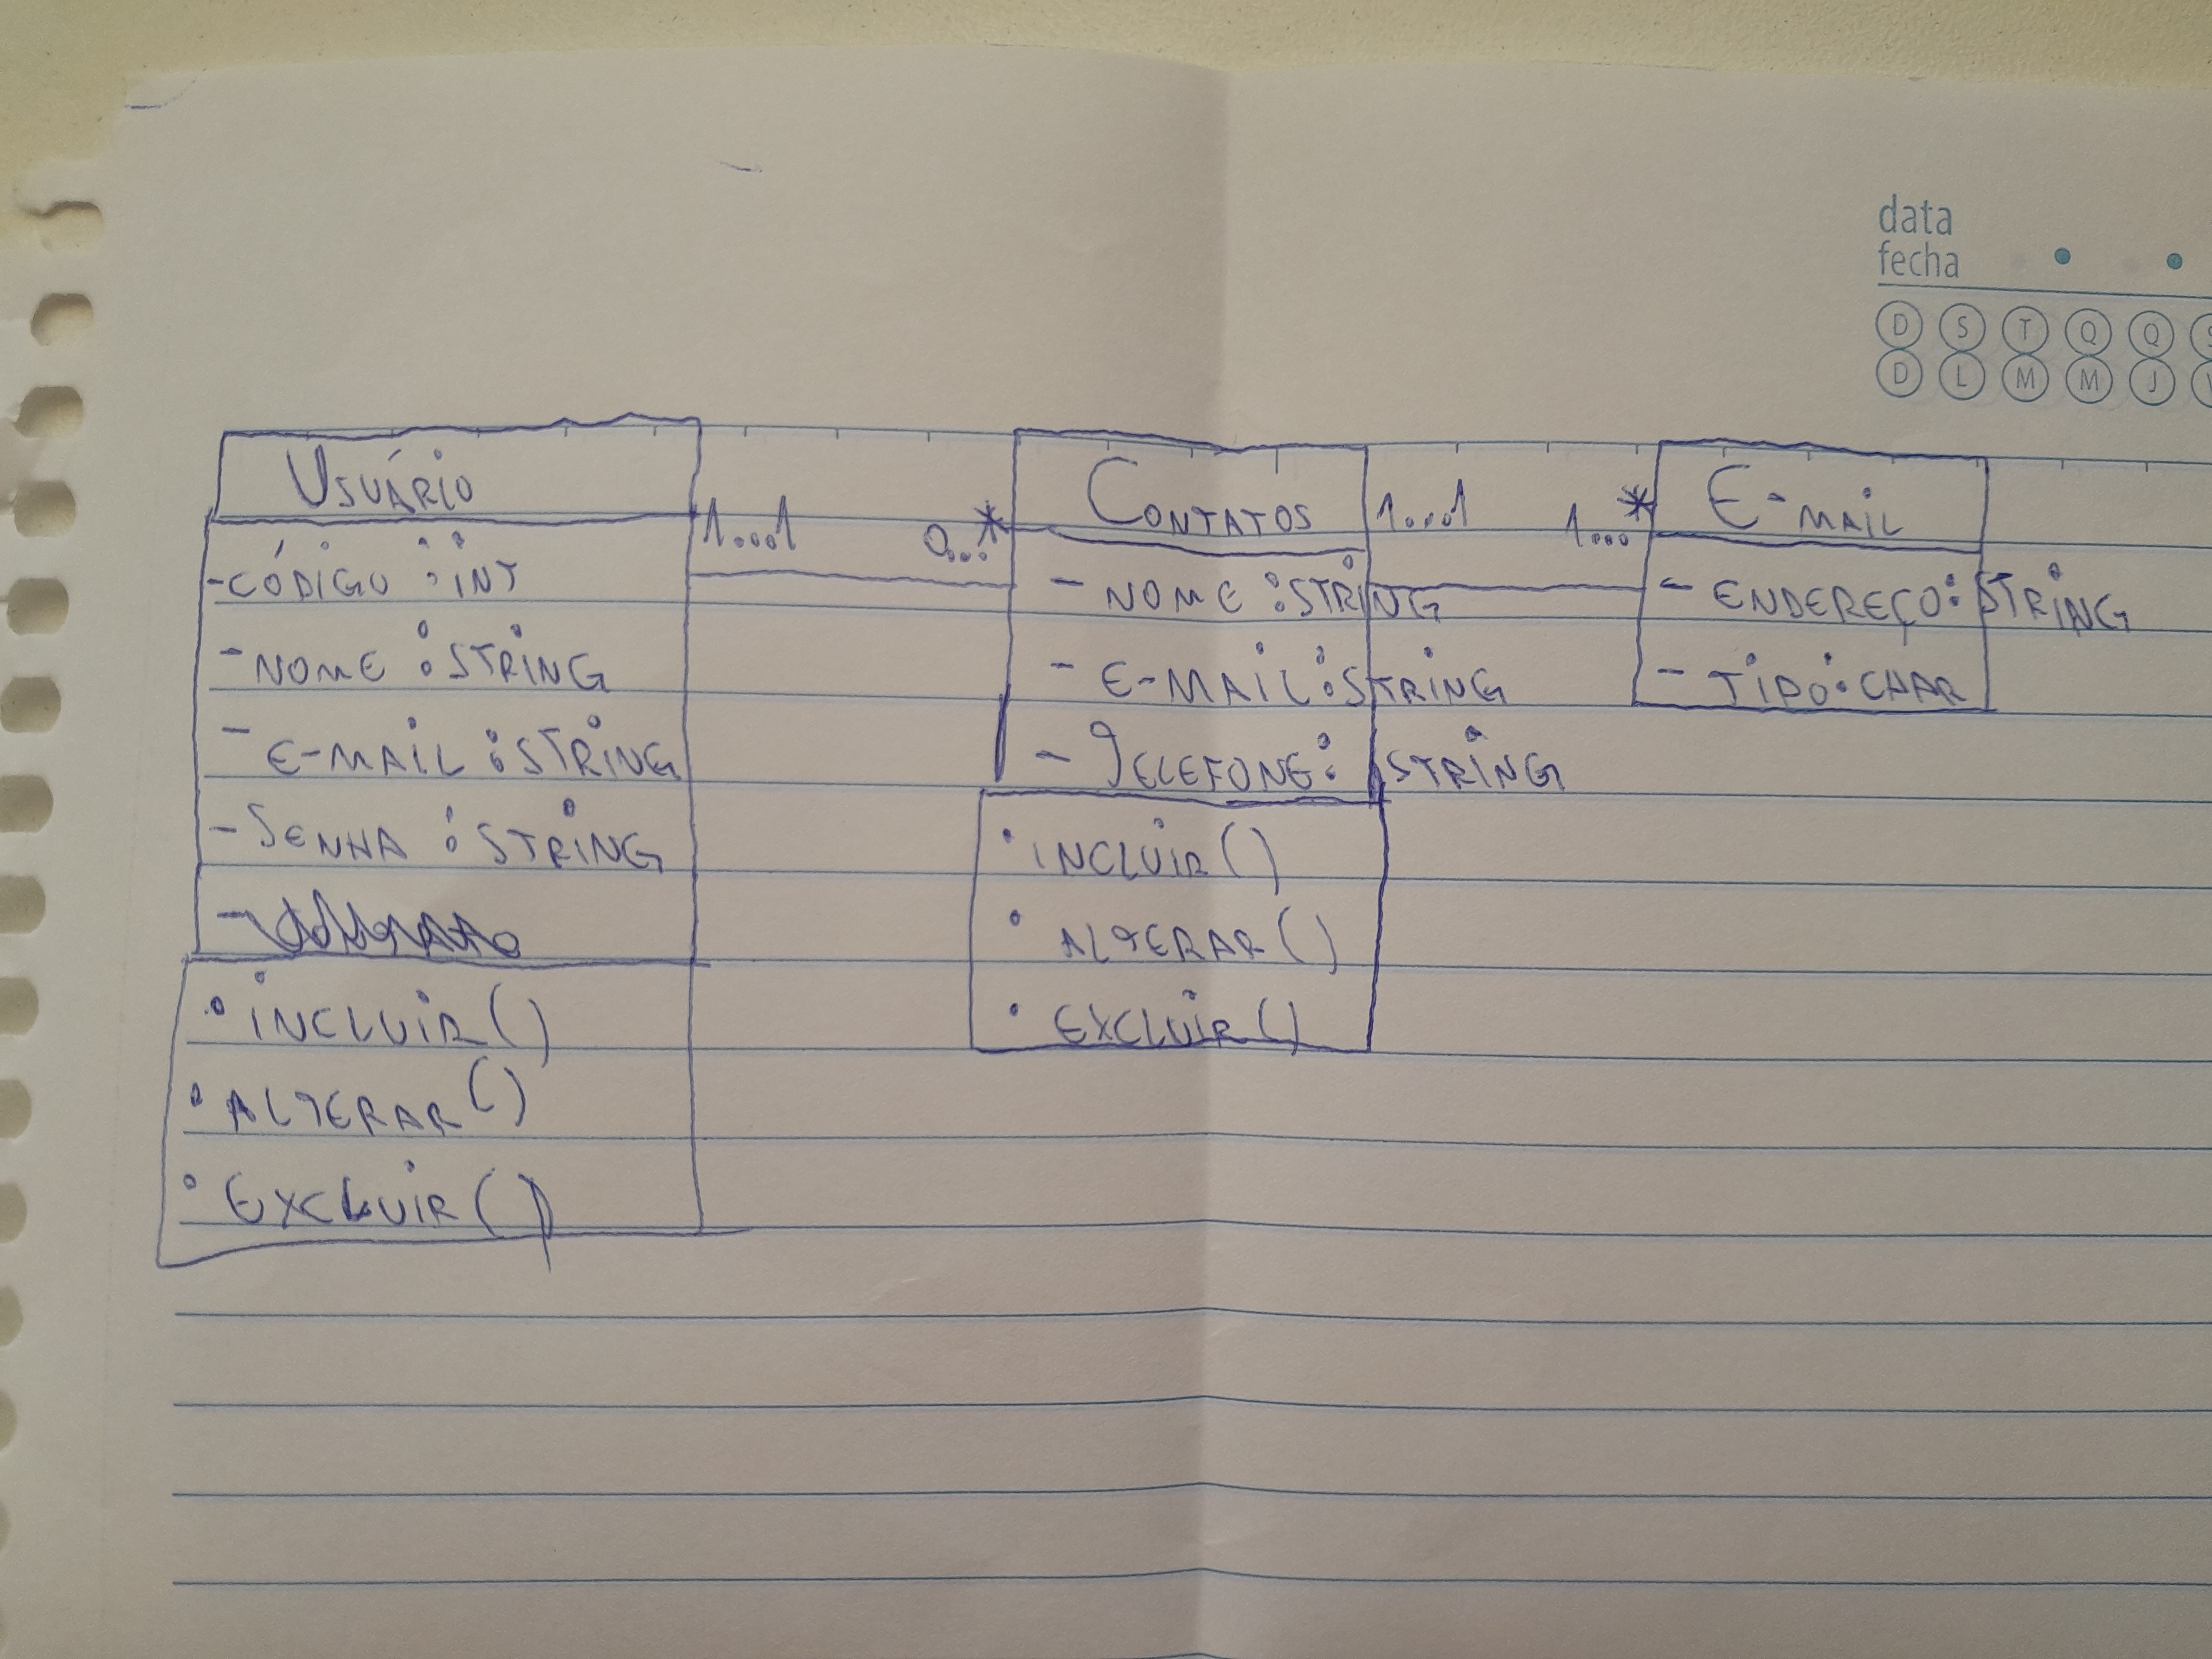 data
fecha
D S T Q Q S
D L M M J V
USUÁRIO
-CÓDIGO : INT
- NOME : STRING
- E-MAIL : STRING
- SENHA : STRING
• INCLUIR()
• ALTERAR()
• EXCLUIR()
1...1
0...*
CONTATOS
- NOME : STRING
- E-MAIL : STRING
- TELEFONE : STRING
• INCLUIR()
• ALTERAR()
• EXCLUIR()
1...1
1...*
E-MAIL
- ENDEREÇO : STRING
- TIPO : CHAR